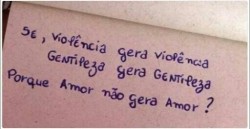 SE, Violência gera Violência
GENTILEZA gera GENTILEZA
Porque Amor não gera Amor ?